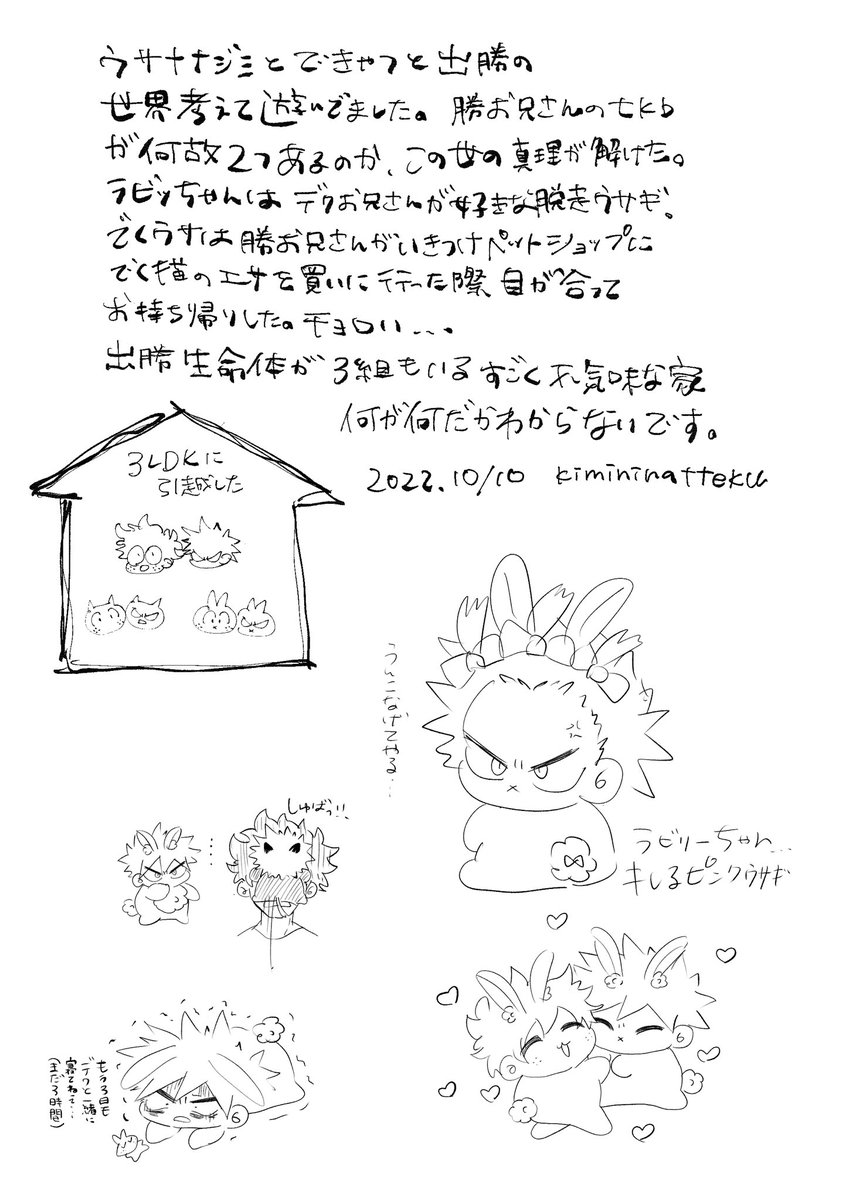 ウサナナジミとできゃつと出勝の
世界考えて遊んでました。勝お兄さんのtkb
が何故2つあるのか、この世の真理が解けた。
ラビッちゃんは デクお兄さんが好きな脱走ウサギ。
でくウサは勝お兄さんがいきつけペットショップに
でく猫のエサを買いに行った際 目が合って
お持ち帰りした。チョロい...。
出勝生命体が 3組もいる すごく不気味な家
何が何だかわからないです。
2022.10/10 kimininatteku
3LDKに
引越した
うんこなげてやる...
しゅばっ!!
...
ラビリーちゃん...
キレるピンクウサギ
もう3日も
デクと一緒に
寝てねぇ...
(まだ3時間)